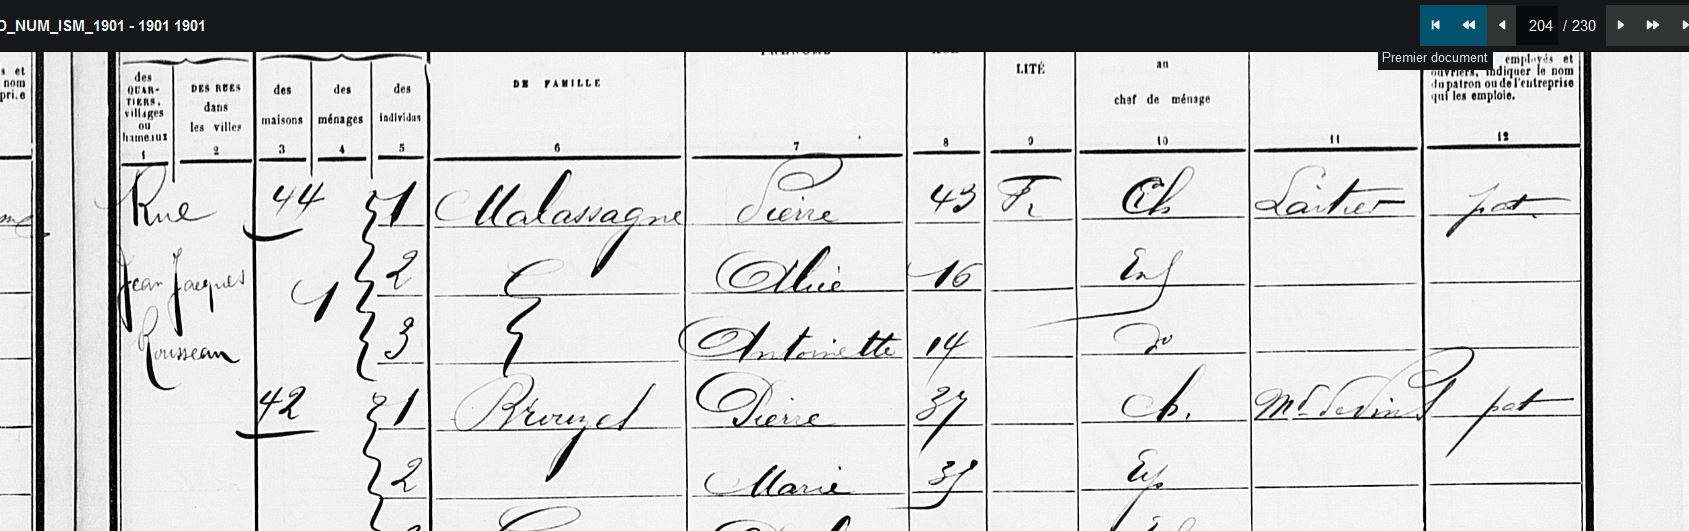 O_NUM_ISM_1901 - 1901 1901
204 / 230
Premier document
s et
nom
pri.e
des
QUAR-
TIERS,
villages
ou
hameaux
1
DES RUES
dans
les villes
2
des
maisons
3
des
ménages
4
des
individus
5
DE FAMILLE
6
PRÉNOMS
7
AGE
8
LITÉ
9
au
chef de ménage
10
11
employés et
ouvriers, indiquer le nom
du patron ou de l'entreprise
qui les emploie.
12
Rue 44 1 Malassagne Pierre 43 Fr Ch Laitier pat.
Jean Jacques 1 2 Alice 16 Enf
Rousseau 3 Antoinette 14 do
42 1 Brouzet Pierre 37 ch. Md de Vins pat
2 Marie 35 Ep